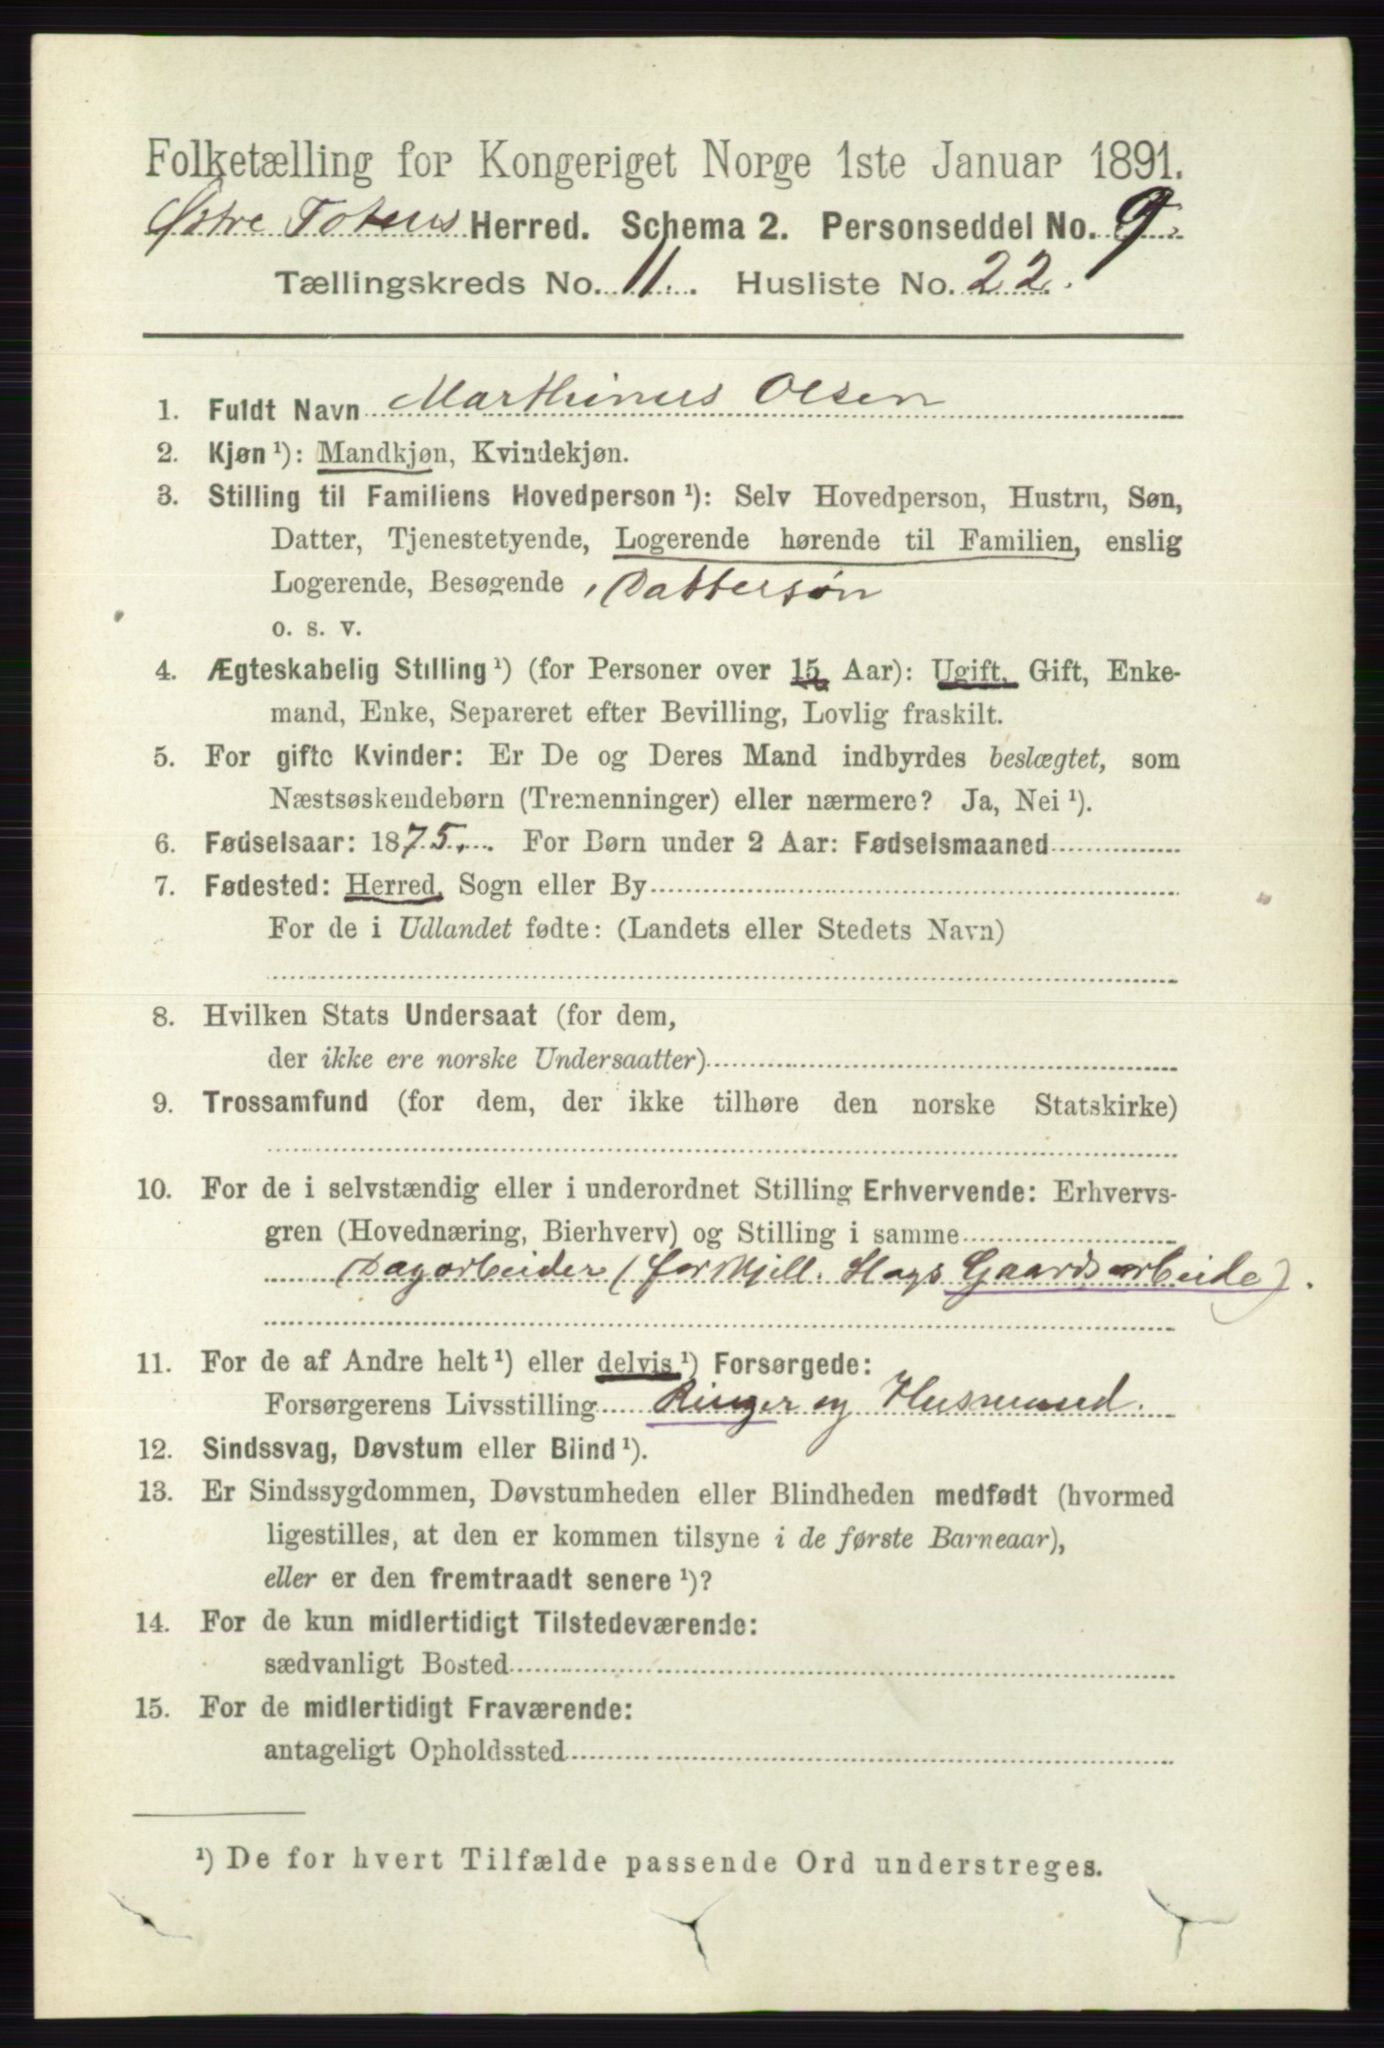 Folketælling for Kongeriget Norge 1ste Januar 1891.
Østre Totens Herred. Schema 2. Personseddel No. 9.
Tællingskreds No. 11. Husliste No. 22.
1. Fuldt Navn Marthinus Olsen
2. Kjøn ¹): Mandkjøn, Kvindekjøn.
3. Stilling til Familiens Hovedperson ¹): Selv Hovedperson, Hustru, Søn,
Datter, Tjenestetyende, Logerende hørende til Familien, enslig
Logerende, Besøgende , Dattersøn
o. s. v.
4. Ægteskabelig Stilling ¹) (for Personer over 15 Aar): Ugift, Gift, Enke-
mand, Enke, Separeret efter Bevilling, Lovlig fraskilt.
5. For gifte Kvinder: Er De og Deres Mand indbyrdes beslægtet, som
Næstsøskendebørn (Tremenninger) eller nærmere? Ja, Nei ¹).
6. Fødselsaar: 1875. For Børn under 2 Aar: Fødselsmaaned
7. Fødested: Herred, Sogn eller By
For de i Udlandet fødte: (Landets eller Stedets Navn)
8. Hvilken Stats Undersaat (for dem,
der ikke ere norske Undersaatter)
9. Trossamfund (for dem, der ikke tilhøre den norske Statskirke)
10. For de i selvstændig eller i underordnet Stilling Erhvervende: Erhvervs-
gren (Hovednæring, Bierhverv) og Stilling i samme
Dagarbeider (for Gaardsarbeide).
11. For de af Andre helt ¹) eller delvis ¹) Forsørgede:
Forsørgerens Livsstilling Ringer og Husmand.
12. Sindssvag, Døvstum eller Blind ¹).
13. Er Sindssygdommen, Døvstumheden eller Blindheden medfødt (hvormed
ligestilles, at den er kommen tilsyne i de første Barneaar),
eller er den fremtraadt senere ¹)?
14. For de kun midlertidigt Tilstedeværende:
sædvanligt Bosted
15. For de midlertidigt Fraværende:
antageligt Opholdssted
¹) De for hvert Tilfælde passende Ord understreges.